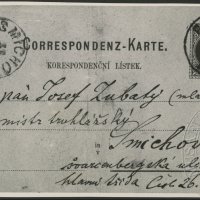 SMICHO
CORRESPONDENZ-KARTE.
KORESPONDENČNÍ LÍSTEK.
pán Josef Zubatý (ml
mistr truhlářský
Smichov
švarcenberská ul
hlavní třída Čís 26.